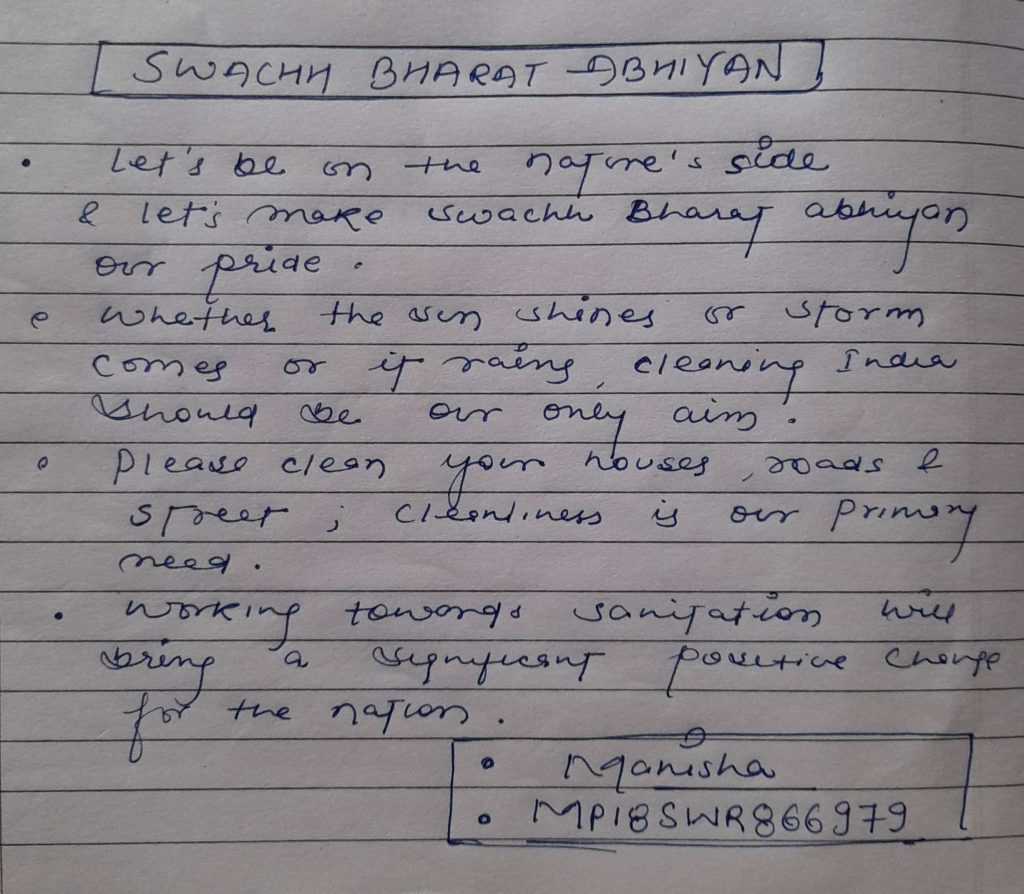 SWACHH BHARAT ABHIYAN
• Let's be on the nature's side
& let's make swachh Bharat abhiyan
our pride.
• Whether the sun shines or storm
comes or if rains, cleaning India
should be our only aim.
• Please clean your houses, roads &
street; cleanliness is our primary
need.
• Working towards sanitation will
bring a significant positive change
for the nation.
• Manisha
• MP18SWR866979